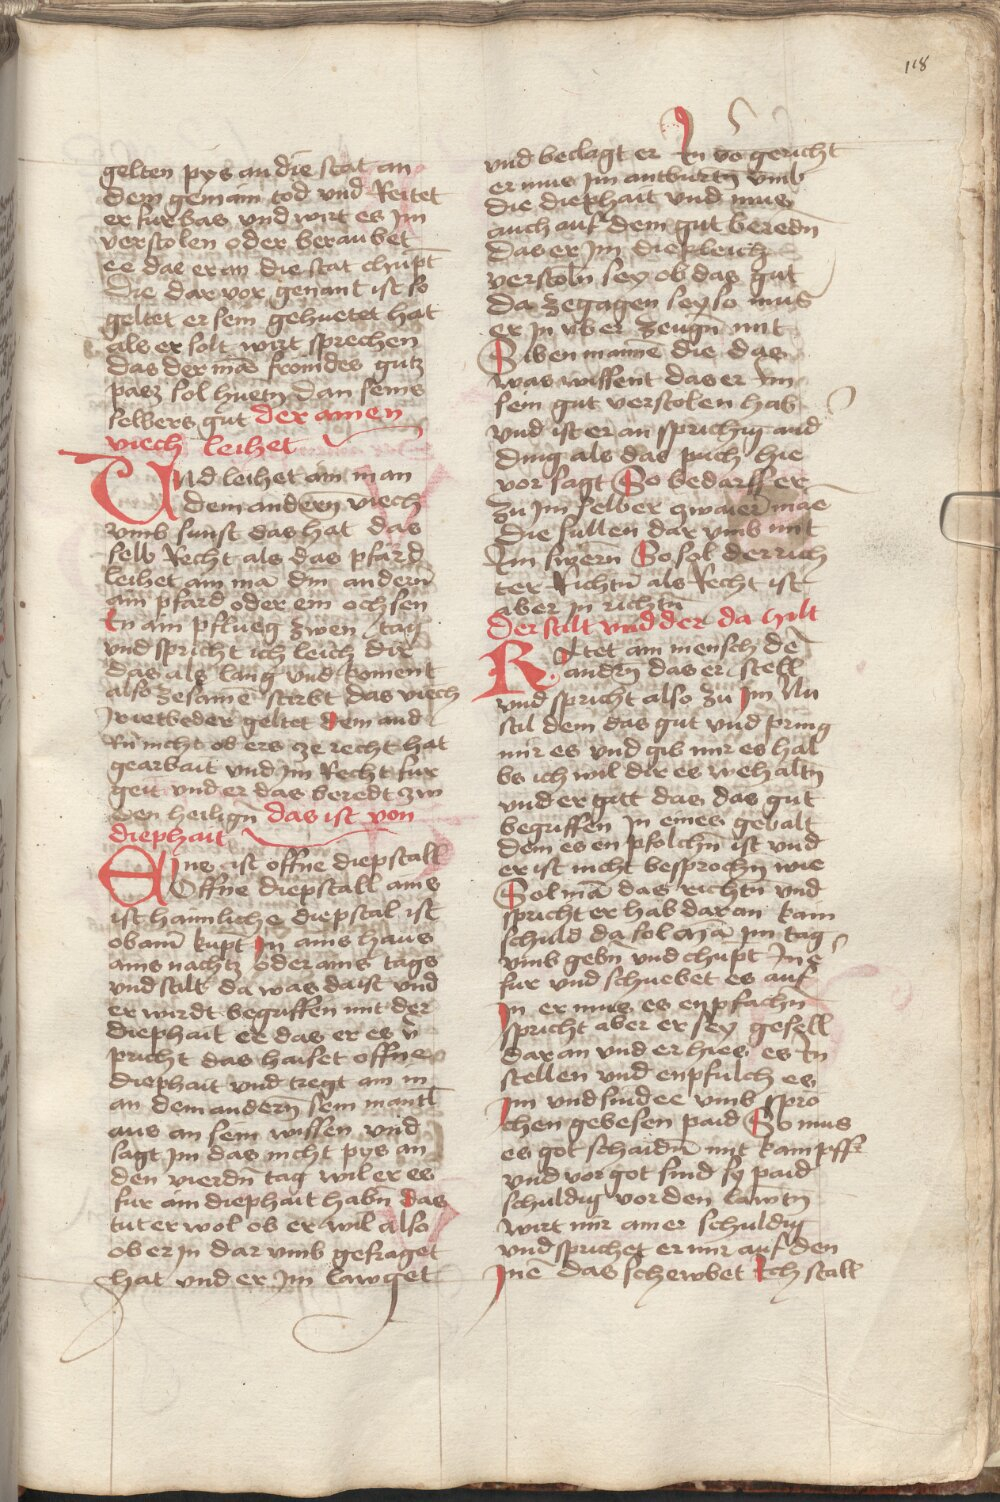 118
gelten pys an die stat an
dem gemain tod und Reitet
er furbas und wirt es im
verstolen oder beraubet
ee das er an die stat chupt
die dar vor genant ist so
geltet er sein gehuetet hat
als er solt wirt sprechen
das der mā fromdes gutz
pasz sol huetn dan seins
selbers gut der ainen
viech leihet
Und leihet ain man
dem anderen viech
umb sunst das hat das
selb Recht als das pfard
leihet ain mā din andern
ain pfard oder ein ochsen
In ain pflueg zwen tag
und spricht ich leich dir
das als lang und koment
also zesame sterbt das viech
Jetweder geltet dem and
Rn nicht ob ers ze recht hat
gearbait und im Recht fur
geit und er das beredt zw
den heiligñ das ist von
diephait
Aine ist offne diepstall
Offne diepstall ains
ist haimliche diepstal ist
ob aim kupt in ains haus
ains nachtz oder ains tags
und stilt da was da ist und
er wirdt begriffen mit der
diephait ee das er es v̄
pricht das haiset offne
diephait und tregt ain m
an dem andern sein mantl
aus an sein wissen und
sagt im das nicht pys an
den vierdn tag wil er es
fur ain diephait habn das
tut er wol ob er wil also
ob er in dar umb gefraget
hat und er im lawget
und beclagt er In vo gericht
er mus im antburtn umb
die diephait und mus
auch auf dem gut beredn
das er im diepleich
verstoln sey ob das gut
da zegagen sey so mus
er in uber zeugn mit
Siben manne die das
was wissent das er im
sein gut verstolen hab
und ist er an sprichig and
ding als das puch hie
vor sagt So bedarff er
zu im selber zwaier mae
die sullen dar umb mit
Im swern So sol der rich
ter Richtn als Recht ist
aber in richtn
der stilt und der da hilt
Rātet ain mensch de
andrn das er stell
und spricht also zu im Nu
stil dem das gut und pring
mir es und gib mir es hal
bs ich wil dir es wehaltn
und er gitt das das gut
begriffen in eines gebalt
dem es enpfolchn ist und
er ist nicht besprochn wie
Sol mā das richtn und
spricht er hab dar an kain
schuld da sol mā im tag
umb gebn und chupt Jne
fur und schuebet es auf
in er mus es enpfachn
spricht aber er sey gesell
dar an und er hies es In
stellen und enpfulch es
im und sindee umb spro
chen gebesen paid So mus
es got schaidn mit kampff
und vor got sind sy paid
schuldig vor den lawtn
wirt nur ainer schuldig
und sprichet er nur auf den
Jne das schewbet Ich stall